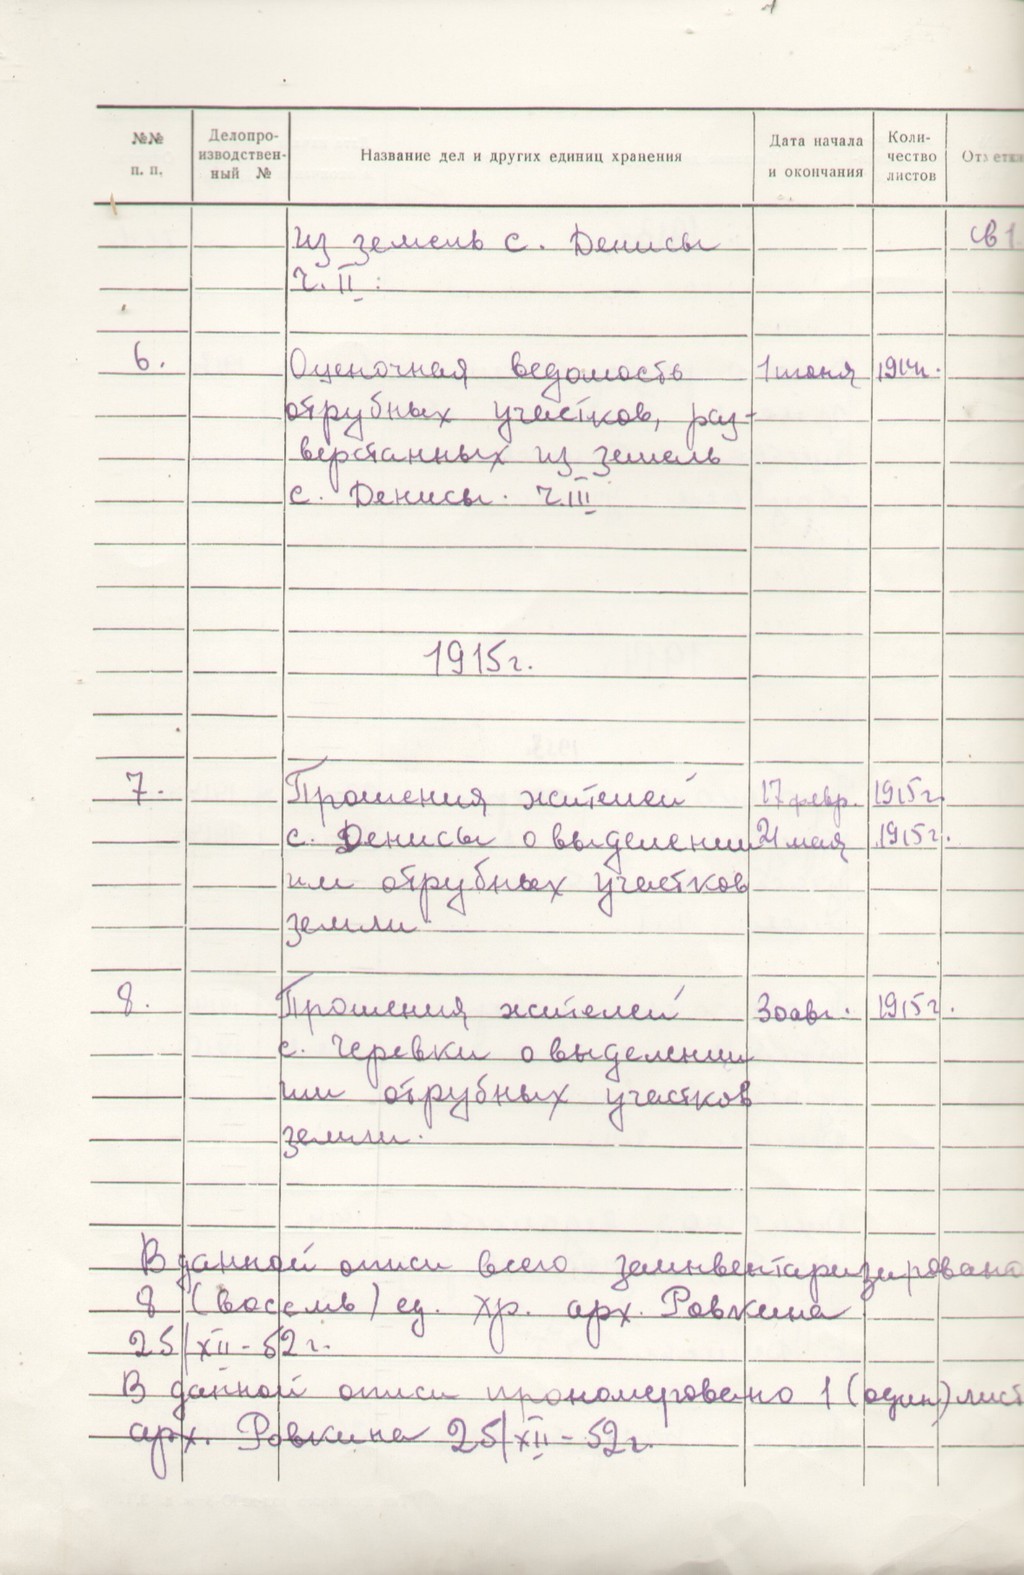 №№ п. п.
Делопро-
изводствен-
ный №
Название дел и других единиц хранения
Дата начала
и окончания
Коли-
чество
листов
из земель с. Денисы
ч. II.
6. Оценочная ведомость 1 июня 1914г.
отрубных участков, раз-
верстанных из земель
с. Денисы. ч. III
1915г.
7. Прошения жителей 17 февр. 1915г.
с. Денисы о выделении 21 мая 1915г.
им отрубных участков
земли.
8. Прошения жителей 30 авг. 1915г.
с. Черевки о выделении
им отрубных участков
земли.
В данной описи всего заинвентаризировано
8 (восемь) ед. хр. арх. Ровкина
25/XII-52г.
В данной описи прономеровано 1 (один) лист
арх. Ровкина 25/XII-52г.